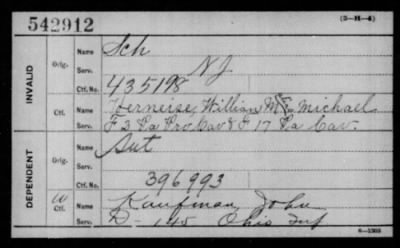 542912
(3-H-4)
INVALID
Orig.
Name Sch
Serv. NJ
Ctf. No. 435198
Ctf.
Name Herneise, William M Michael
Serv. F 3 Pa Pro Cav & F 17 Pa Cav.
DEPENDENT
Orig.
Name Aut
Serv.
Ctf. No. 396993
W
Ctf.
Name Kaufman, John
Serv. D - 145 Ohio Inf